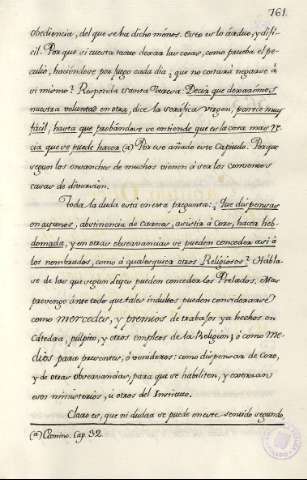 761.
obediencia, del que se ha dicho menos. Esto es lo árduo, y difi-
cil. Porque si cuesta tanto dexar las cosas, como prueba el pe-
culio, haciendose por juego cada dia; que no costará negarse á
si mismo? Responda Santa Teresa: Decir que dexaremos
nuestra voluntad en otra, dice la seráfica virgen, parece muy
fácil, hasta que probandose se entiende que es la cosa mas re-
cia que se puede hacer (a) Por eso añado este Capitulo. Porque
segun los ensanches de muchos vienen á ser los conventos
casas de diversion.
Toda la duda está en esta pregunta: ¿Que dispensas
en ayunos, abstinencia de carnes, asistir á Coro, hacer heb-
domada, y en otras observancias se pueden conceder asi á
los nombrados, como á qualesquiera otros Religiosos? Habla-
se de las que segun Leyes pueden conceder los Prelados. Mas
prevengo ante todo que tales indultos pueden considerarse ó
como mercedes, y premios de trabajos ya hechos en
Cátedra, púlpito, y otros empleos de la Religion; ó como me-
dios para presentes, ó venideros: como dispensar de Coro,
y de otras observancias, para que se habiliten, y exerzan
esos ministerios, ú otros del Instituto.
Claro es, que ni dudar se puede en este sentido segundo,
(a) Camino. Cap. 32.